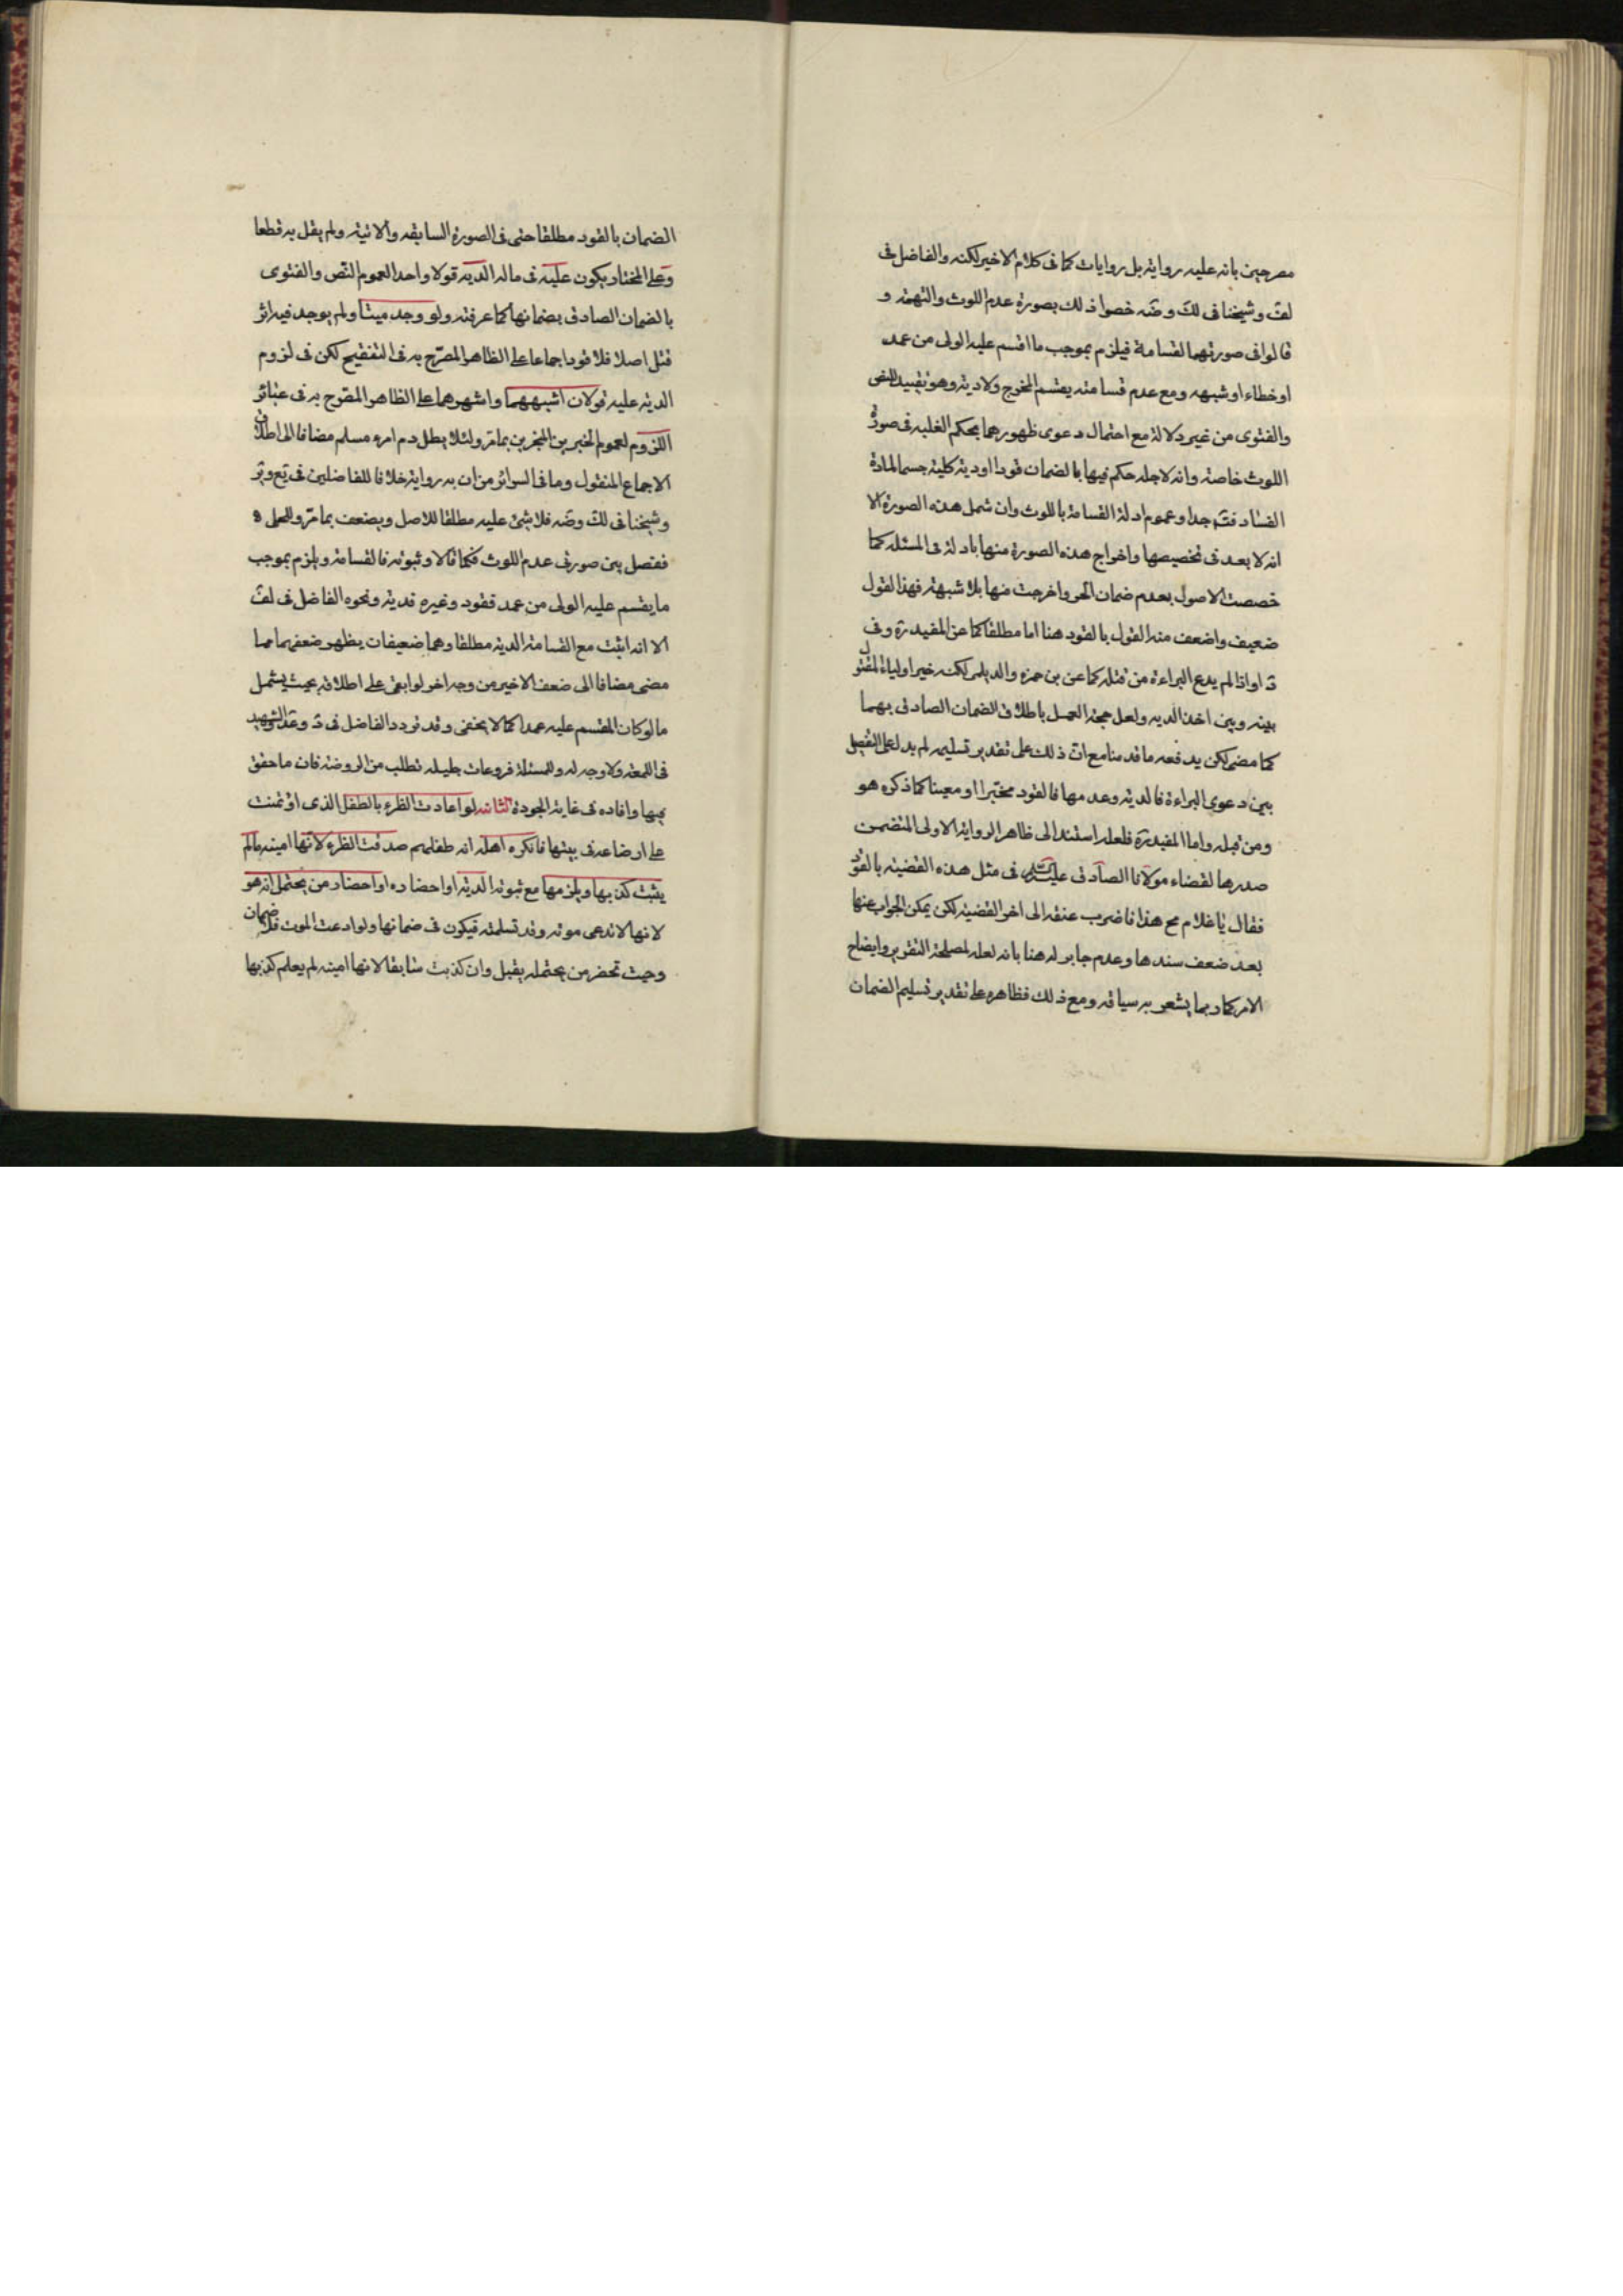 مصرحين بانه عليه رواية بل روايات كما فى كلام الاخير لكنه والفاضل فى
لف وشيخنا فى لك وضه خصوا ذلك بصورة عدم اللوث والتهمة و
قالوا فى صورتهما القسامة فيلزم بموجب ما اقسم عليه الولى من عمد
او خطاء او شبهه ومع عدم قسامته يقسم المخرج ولا دية وهو تقييد للنص
والفتوى من غير دلالة مع احتمال دعوى ظهورهما بحكم الغلبه فى صورة
اللوث خاصة وانه لاجله حكم فيها بالضمان قودا او دية كلية حسما لمادة
الفساد فت جدا وعموم ادلة القسامة باللوث وان شمل هذه الصورة الا
انه لا بعد فى تخصيصها واخراج هذه الصورة منها بادلة فى المسئله كما
خصصت الاصول بعدم ضمان الحر واخرجت منها بلا شبهة فهذا القول
ضعيف واضعف منه القول بالقود هنا اما مطلقا كما عن المفيد ره وفى
د او اذا لم يدع البراءة من قتله كما عن بن حمزه والديلمى لكنه خير اولياء المقتول
بينه وبين اخذ الديه ولعل حجة العمل باطلاق الضمان الصادق بهما
كما مضى لكن يدفعه ما قدمنا مع ان ذلك على تقدير تسليمه لم يدل على التفصيل
بين دعوى البراءة فالدية وعدمها فالقود مخيرا او معينا كما ذكره هو
ومن قبله واما المفيد ره فلعله استند الى ظاهر الرواية الاولى المتضمن
صدرها لقضاء مولانا الصادق عليه السلام فى مثل هذه القضية بالقود
فقال يا غلام نح هذا فاضرب عنقه الى اخر القضية لكن يمكن الجواب عنها
بعد ضعف سندها وعدم جابر له هنا بانه لعله لمصلحة التقرير وايضاح
الامر كما ربما يشعر به سياقه ومع ذلك فظاهره على تقدير تسليم الضمان
الضمان بالقود مطلقا حتى فى الصورة السابقه والاتية ولم يقل به قطعا
وعلى المختار يكون عليه فى ماله الديه قولا واحدا لعموم النص والفتوى
بالضمان الصادق بضمانها كما عرفته ولو وجد ميتا ولم يوجد فيه اثر
قتل اصلا فلا قود اجماعا على الظاهر المصرح به فى التنقيح لكن فى لزوم
الدية عليه قولان اشبههما واشهرهما على الظاهر المصرح به فى عبائر
اللزوم لعموم الخبرين المنجبرين بما مر ولئلا يطل دم امرء مسلم مضافا الى اطلاق
الاجماع المنقول وما فى السرائر من ان به رواية خلافا للفاضلين فى يع وير
وشيخنا فى لك وضه فلا شئ عليه مطلقا للاصل ويضعف بما مر وللحلى
ففصل بين صورتى عدم اللوث فكما قالا وثبوته فالقسامة ويلزم بموجب
ما يقسم عليه الولى من عمد فقود وغيره فدية ونحوه الفاضل فى لف
الا انه اثبت مع القسامة الدية مطلقا وهما ضعيفان يظهر ضعفهما مما
مضى مضافا الى ضعف الاخير من وجه اخر لو ابقى على اطلاقه بحيث يشمل
ما لو كان المقسم عليه عمدا كما لا يخفى وقد تردد الفاضل فى د وعد والشهيد
فى اللمعة ولا وجه له وللمسئلة فروعات جليلة تطلب من الروضة فان ما حقق
بها وافاده فى غاية الجودة الثانيه لو اعادت الظرء بالطفل الذى اؤتمنت
على ارضاعه فى بيتها فانكره اهله انه طفلهم صدقت الظرء لانها امينه ما لم
يثبت كذبها ويلزمها مع ثبوته الدية او احضاره او احضار من يحتمل انه هو
لانها لا تدعى موته وقد تسلمته فيكون فى ضمانها ولو ادعت الموت فلا ضمان
وحيث تحضر من يحتمله يقبل وان كذبت سابقا لانها امينه لم يعلم كذبها